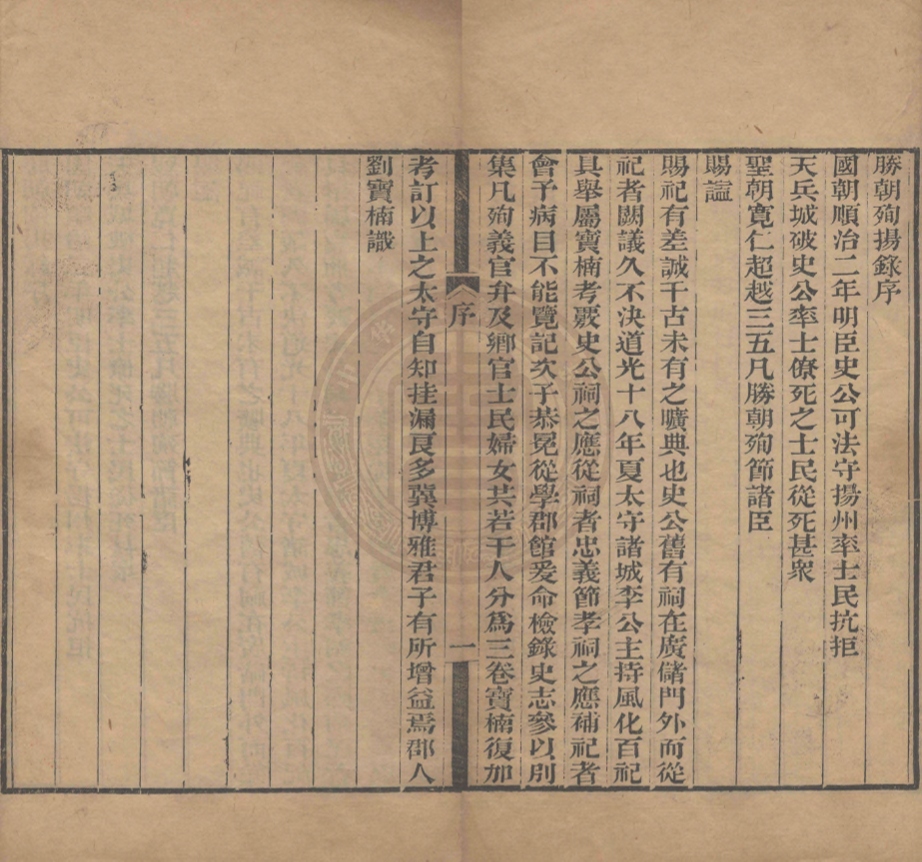 勝朝殉揚錄序
國朝順治二年明臣史公可法守揚州率士民抗拒
天兵城破史公率士僚死之士民從死甚衆
聖朝寬仁超越三五凡勝朝殉節諸臣
賜諡
賜祀有差誠千古未有之曠典也史公舊有祠在廣儲門外而從
祀者闕議久不決道光十八年夏太守諸城李公主持風化百祀
具舉屬寶楠考覈史公祠之應從祠者忠義節孝祠之應補祀者
會予病目不能覽記次子恭冕從學郡館爰命檢錄史志參以別
集凡殉義官弁及鄉官士民婦女共若干人分爲三卷寶楠復加
序
一
考訂以上之太守自知挂漏良多冀博雅君子有所增益焉郡人
劉寶楠識